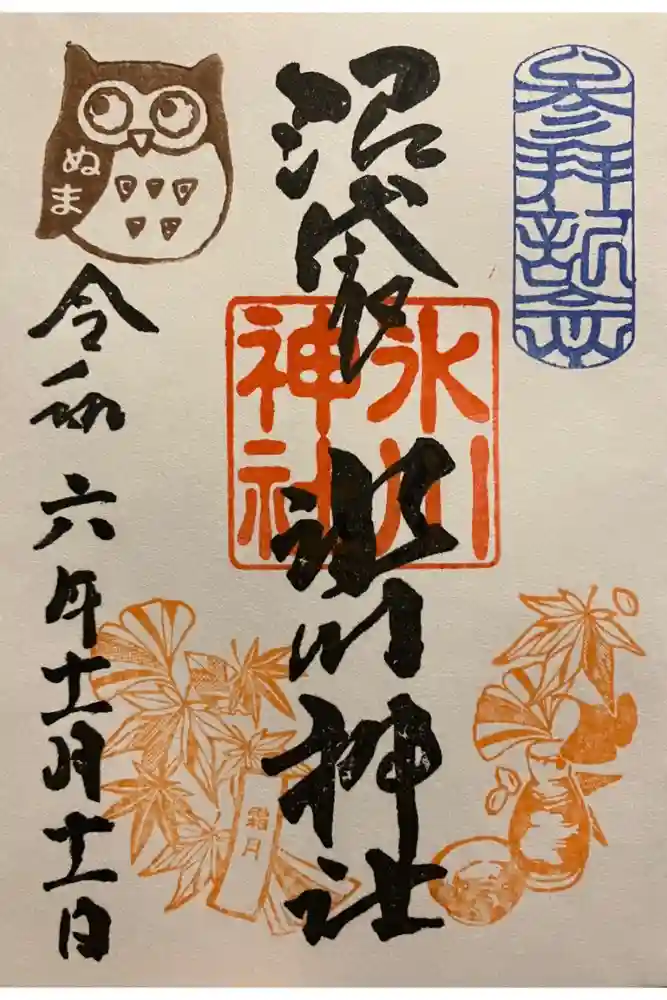 参拝記念
沼袋
氷川神社
氷川
神社
ぬま
令和六年十一月十一日
霜月